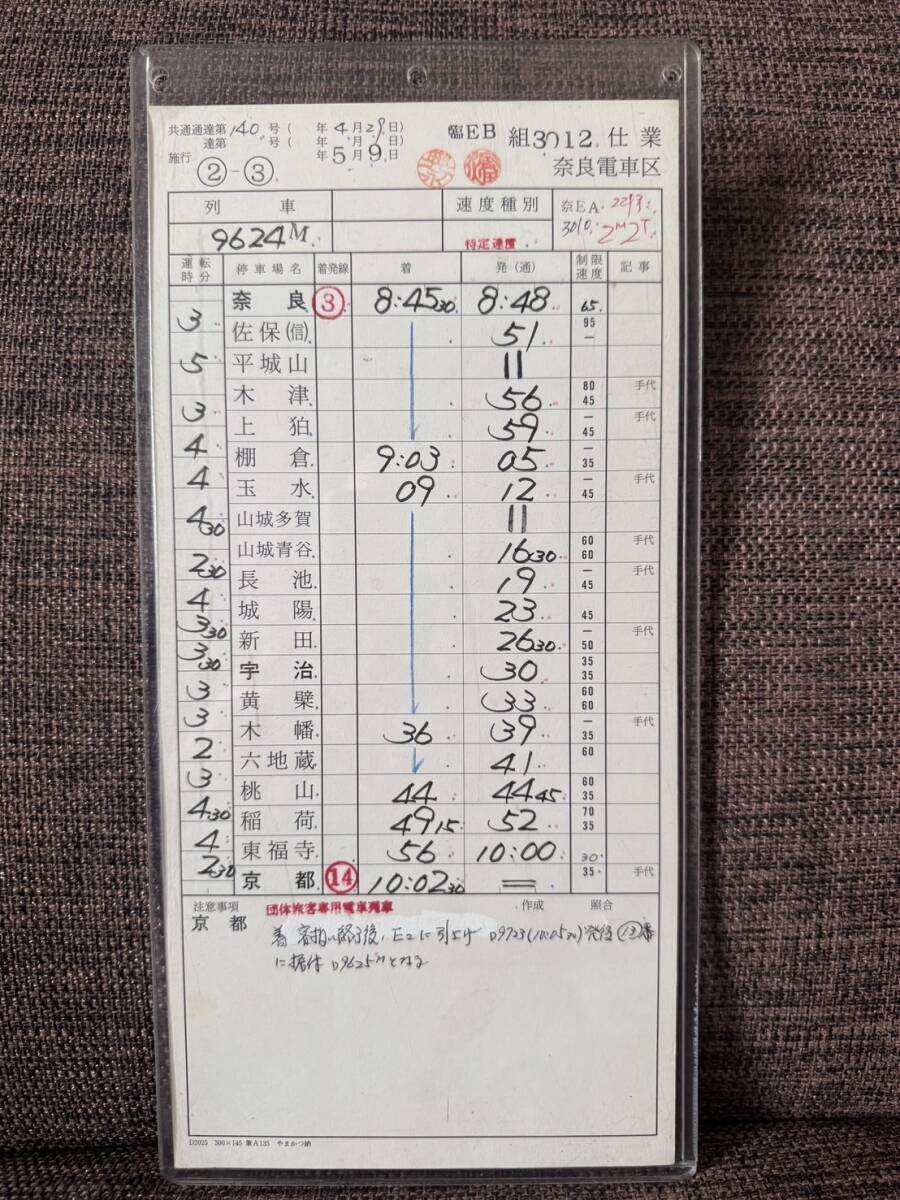 共通通達第140号( 年4月29日)
達第 〃 号( 年 〃 月 〃 日)
施行 ②-③ 年5月9日
臨EB 組3012 仕業
奈良電車区
列 車 速度種別 奈EA
9624M 特定速度 3010 2M2T
運転時分 停車場名 着発線 着 発(通) 制限速度 記事
奈 良 ③ 8:4530 8:48 65
3
佐保(信) 51 95 —
5
平城山 ||
木 津 56 80 45 手代
3
上 狛 59 — 45 手代
4
棚 倉 9:03 05 — 35
4
玉 水 09 12 — 45 手代
430
山城多賀 ||
山城青谷 1630 60 60 手代
230
長 池 19 — 45 手代
4
城 陽 23 45
330
新 田 2630 — 50 手代
330
宇 治 30 35 35
3
黄 檗 33 60 60
3
木 幡 36 39 — 35 手代
2
六地蔵 41 60
3
桃 山 44 4445 60 35
430
稲 荷 4915 52 70 35
4
東福寺 56 10:00 30
230
京 都 ⑭ 10:0230 = 35 手代
注意事項 団体旅客専用電車列車 作成 照合
京 都
着 客扱い終了後、E2に引上げ 発後⑬番
に据付 9625Mとなる
D2025 300×145 兼A135 やまかつ納